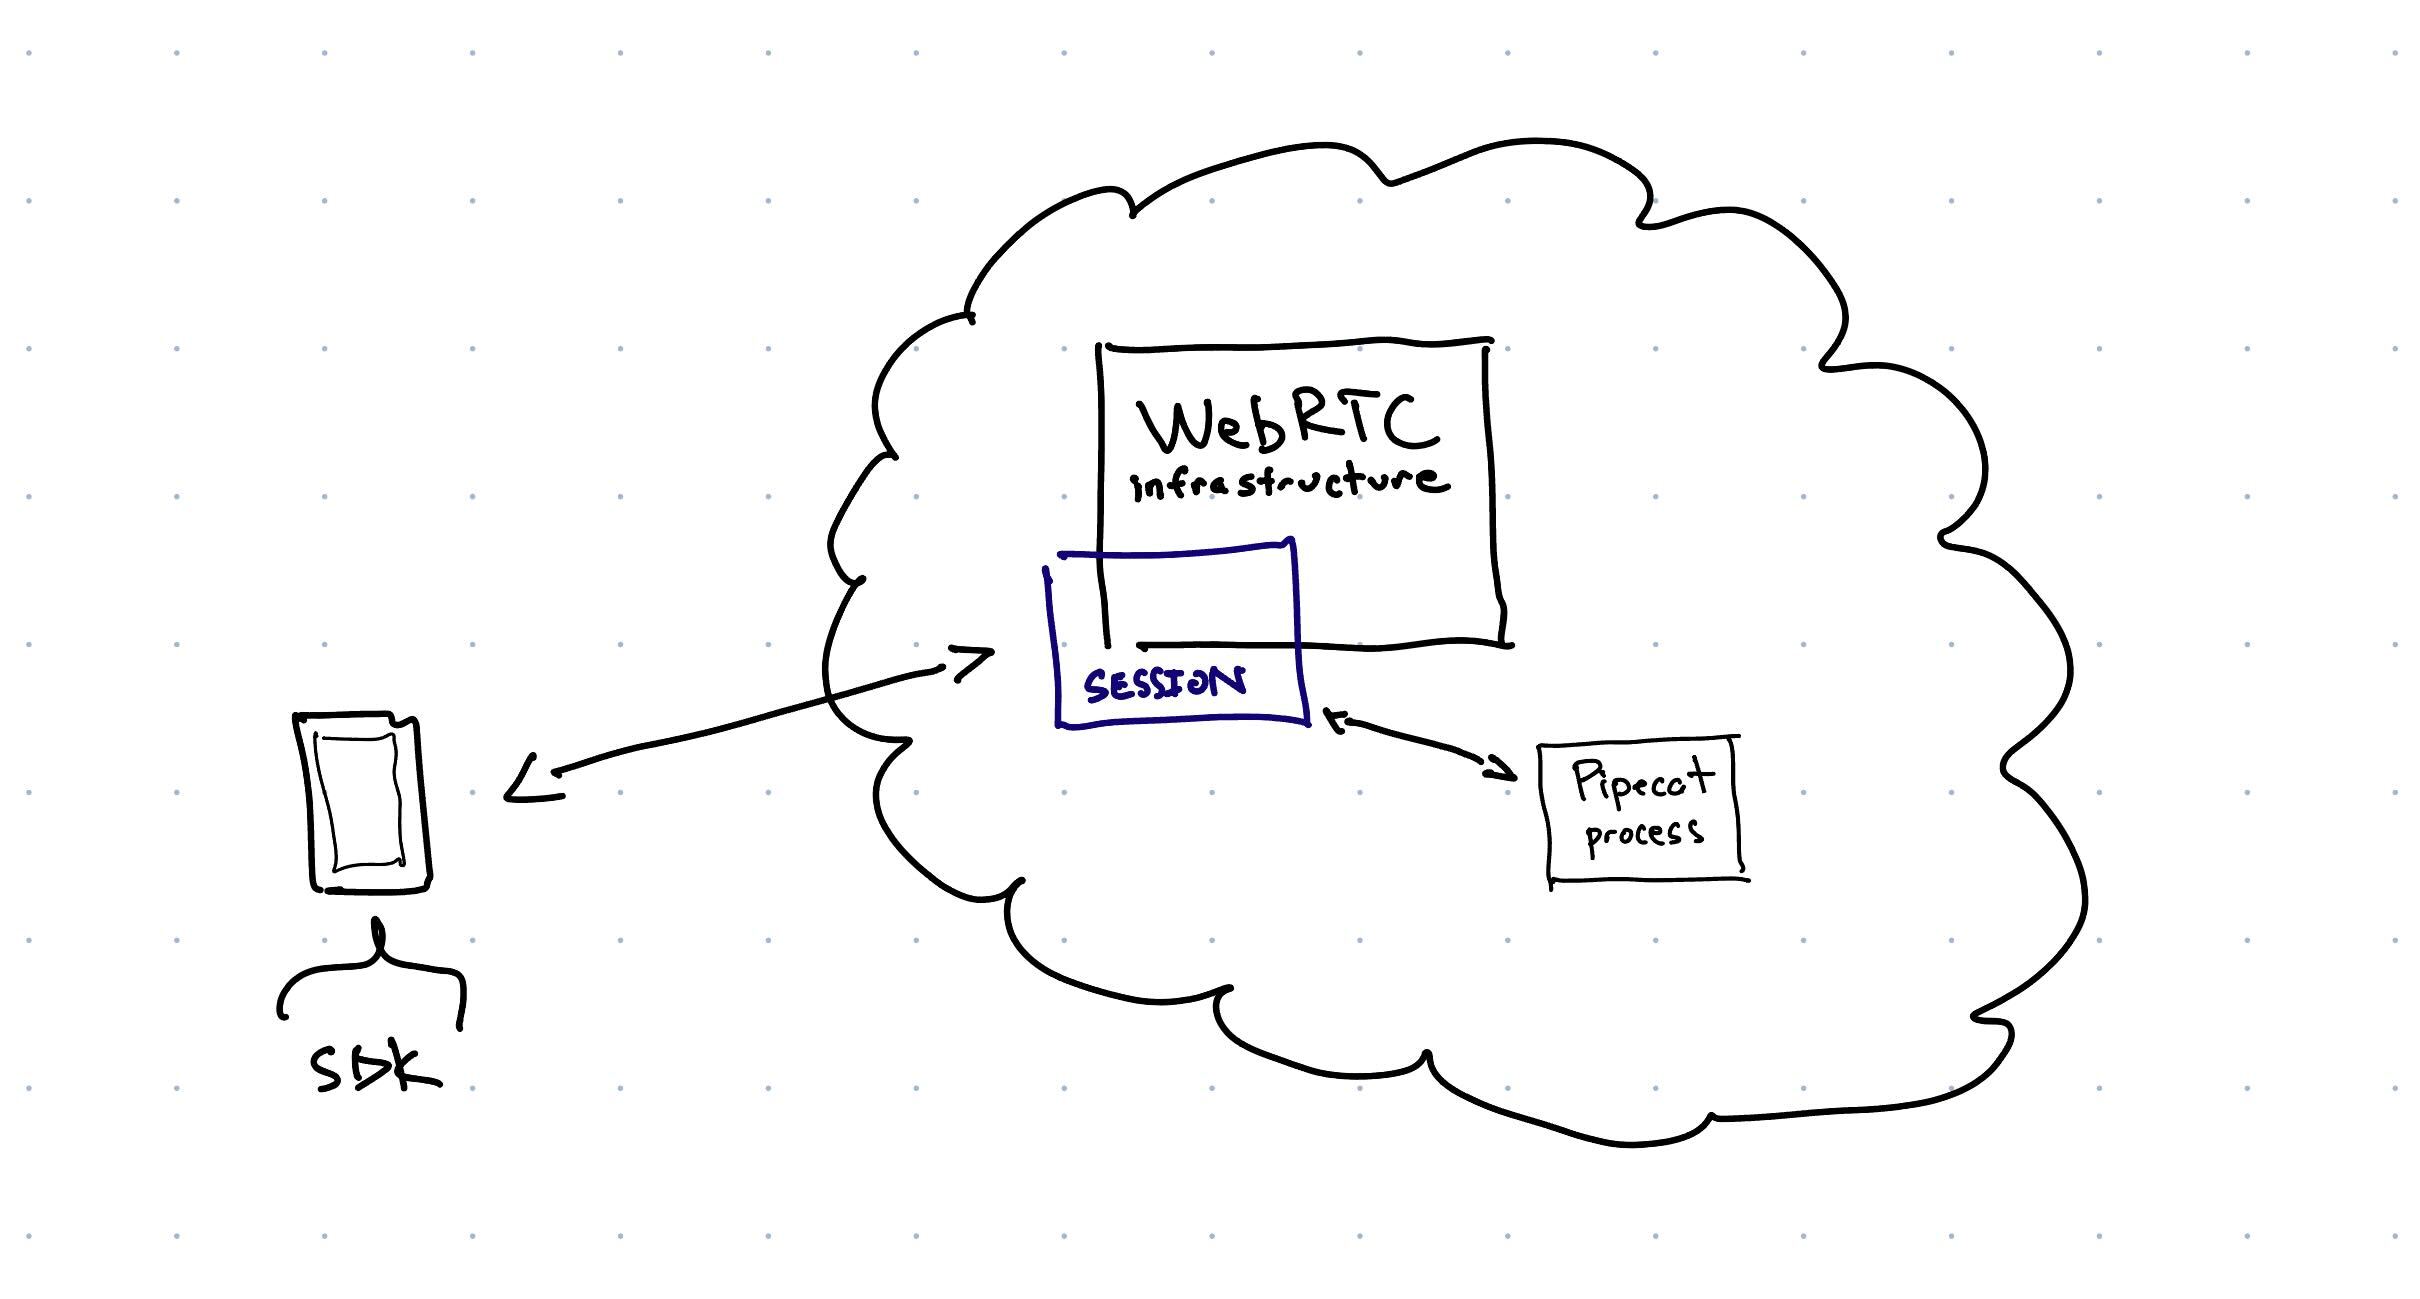 WebRTC
infrastructure
SESSION
Pipecat
process
SDK